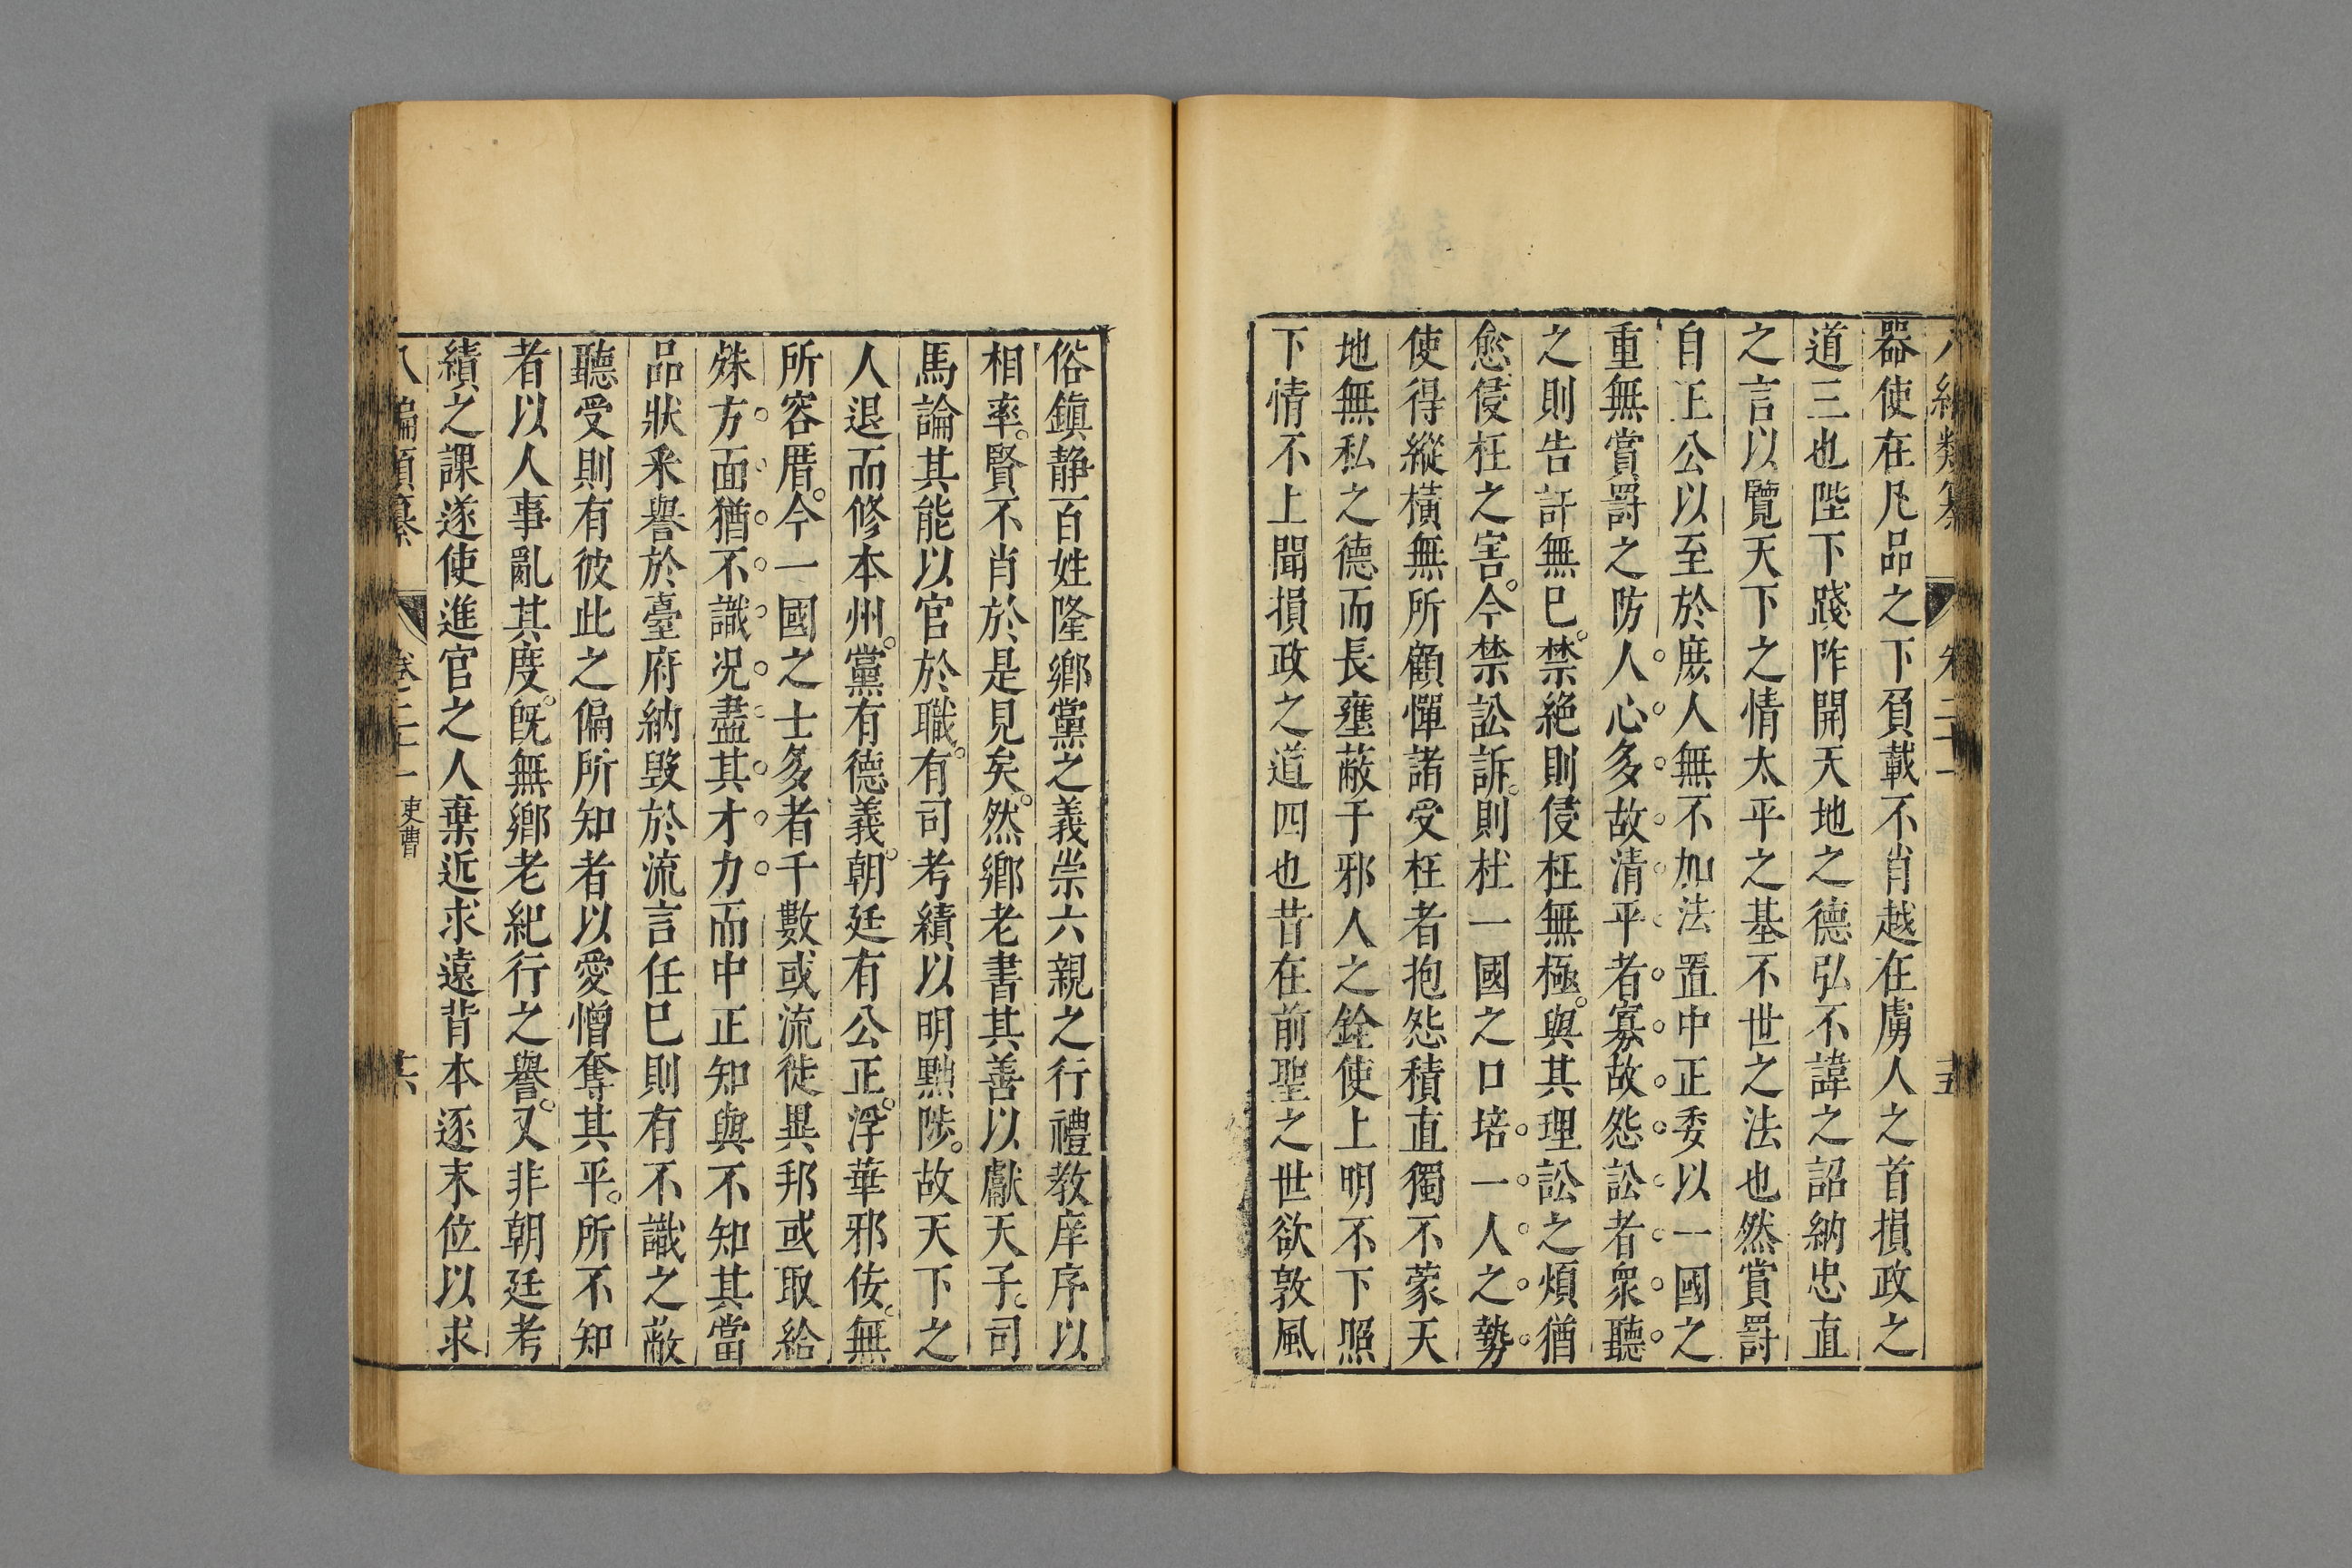 八編類纂 卷二十一 五
器使在凡品之下負載不肖越在虜人之首損政之
道三也陛下踐阼開天地之德弘不諱之詔納忠直
之言以覽天下之情太平之基不世之法也然賞罰
自王公以至於庶人無不加法置中正委以一國之
重無賞罸之防人心多故清平者寡故怨訟者衆聽
之則告訐無已禁絕則侵枉無極與其理訟之煩猶
愈侵枉之害今禁訟訴則杜一國之口培一人之勢
使得縱橫無所顧憚諸受枉者抱怨積直獨不蒙天
地無私之德而長壅蔽于邪人之銓使上明不下照
下情不上聞損政之道四也昔在前聖之世欲敦風
俗鎮静百姓隆鄉黨之義崇六親之行禮教庠序以
相率賢不肖於是見矣然鄉老書其善以獻天子司
馬論其能以官於職有司考績以明黜陟故天下之
人退而修本州黨有德義朝廷有公正浮華邪佞無
所容厝今一國之士多者千數或流徙異邦或取給
殊方面猶不識况盡其才力而中正知與不知其當
品狀采譽於臺府納毀於流言任巳則有不識之蔽
聽受則有彼此之偏所知者以愛憎奪其平所不知
者以人事亂其度旣無鄉老紀行之譽又非朝廷考
績之課遂使進官之人棄近求遠背本逐末位以求
八編類纂 卷二十一 吏曹 六